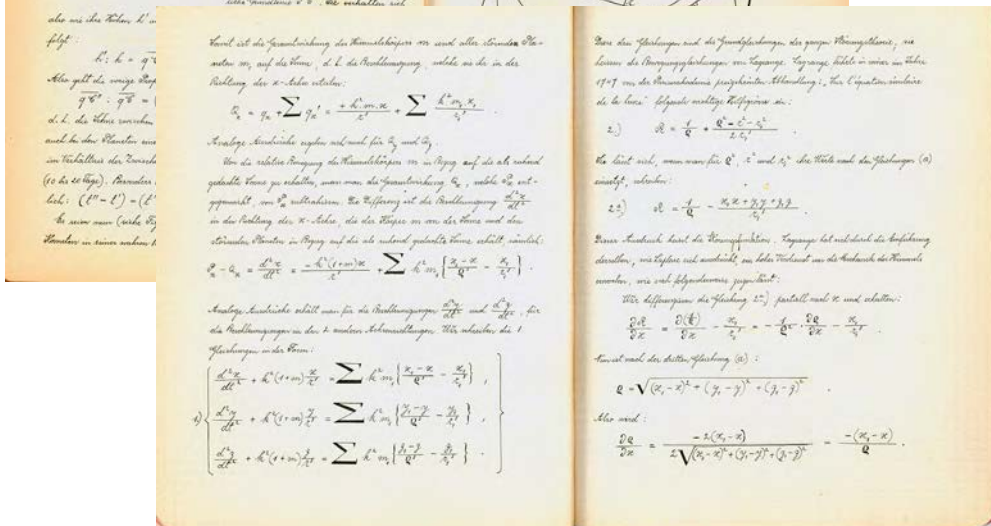 also wie ihre Höhen h' u
folgt :
h' : h =
Also geht die vorige Prop
d. h. die Sehne zwischen
auch bei den Planeten eine
im Verhältnis der Zwische
(10 bis 20 Tage). Besonders
lich: (t''-t') = (t'
Es seien nun (siehe Fig
Planeten in seiner wahren
Somit ist die Gesamtwirkung des Himmelskörpers m und aller störenden Pla-
neten m, auf die Sonne, d. h. die Beschleunigung, welche sie ihr in der
Richtung der x-Achse erteilen:
Qₓ = qₓ + ∑ qₓ' = + k².m.x / r³ + ∑ k².m,x, / r,³ .
Analoge Ausdrücke ergeben sich auch für Q_y und Q_z.
Um die relative Bewegung des Himmelskörpers m in Bezug auf die als ruhend
gedachte Sonne zu erhalten, man die Gesamtwirkung Qₓ, welche Pₓ ent-
gegenwirkt, von Pₓ subtrahieren. Die Differenz ist die Beschleunigung d²x/dt²
in der Richtung der x-Achse, die der Körper m von der Sonne und den
störenden Planeten in Bezug auf die als ruhend gedachte Sonne erhält, nämlich:
Pₓ - Qₓ = d²x/dt² = -k²(1+m)x / r³ + ∑ k² m, { (x,-x)/ϱ³ - x,/r,³ } .
Analoge Ausdrücke erhält man für die Beschleunigungen d²y/dt² und d²z/dt², für
die Beschleunigungen in den 2 andern Achsenrichtungen. Wir schreiben die 3
Gleichungen in der Form:
d²x/dt² + k²(1+m) x/r³ = ∑ k² m, { (x,-x)/ϱ³ - x,/r,³ } ,
1) d²y/dt² + k²(1+m) y/r³ = ∑ k² m, { (y,-y)/ϱ³ - y,/r,³ } ,
d²z/dt² + k²(1+m) z/r³ = ∑ k² m, { (z,-z)/ϱ³ - z,/r,³ } .
Diese drei Gleichungen sind die Grundgleichungen der ganzen Störungstheorie, sie
heissen die Bewegungsgleichungen von Lagrange. Lagrange führte in seiner im Jahre
von der Pariserakademie preisgekrönten Abhandlung: "Sur l'équation séculaire
de la lune" folgende wichtige Hilfsgrösse ein:
2.) R = 1/ϱ + (ϱ²-r²-r,²) / 2 r,³ .
Sie lässt sich, wenn man für ϱ², r² und r,² ihre Werte nach den Gleichungen (a)
einsetzt, schreiben:
2ᵃ) R = 1/ϱ - (x,x + y,y + z,z) / r,³
Dieser Ausdruck heisst die Störungsfunktion. Lagrange hat sich durch die Einführung
derselben, wie Laplace sich ausdrückt, ein hohes Verdienst um die Mechanik des Himmels
erworben, wie sich folgenderweise zeigen lässt:
Wir differenzieren die Gleichung 2ᵃ) partiell nach x und erhalten:
∂R/∂x = ∂(1/ϱ)/∂x - x,/r,³ = - 1/ϱ² · ∂ϱ/∂x - x,/r,³ .
Nun ist nach der dritten Gleichung (a) :
ϱ = √((x,-x)² + (y,-y)² + (z,-z)²)
Also wird :
∂ϱ/∂x = -2(x,-x) / 2√((x,-x)²+(y,-y)²+(z,-z)²) = -(x,-x)/ϱ .